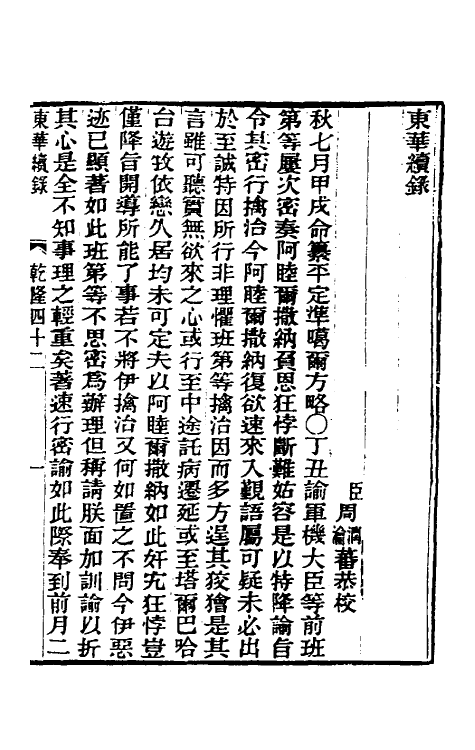 東華續錄
臣周潤蕃瀹恭校
秋七月甲戌命纂平定準噶爾方略○丁丑諭軍機大臣等前班
第等屢次密奏阿睦爾撒納負恩狂悖斷難姑容是以特降諭旨
令其密行擒治今阿睦爾撒納復欲速來入覲語屬可疑未必出
於至誠特因所行非理懼班第等擒治因而多方逞其狡獪是其
言雖可聽實無欲來之心或行至中途託病遷延或至塔爾巴哈
台遊牧依戀久居均未可定夫以阿睦爾撒納如此奸宄狂悖豈
僅降旨開導所能了事若不將伊擒治又何如置之不問今伊惡
迹已顯著如此班第等不思密為辦理但稱請朕面加訓諭以折
其心是全不知事理之輕重矣著速行密諭如此際奉到前月二
東華續錄 乾隆四十二 一